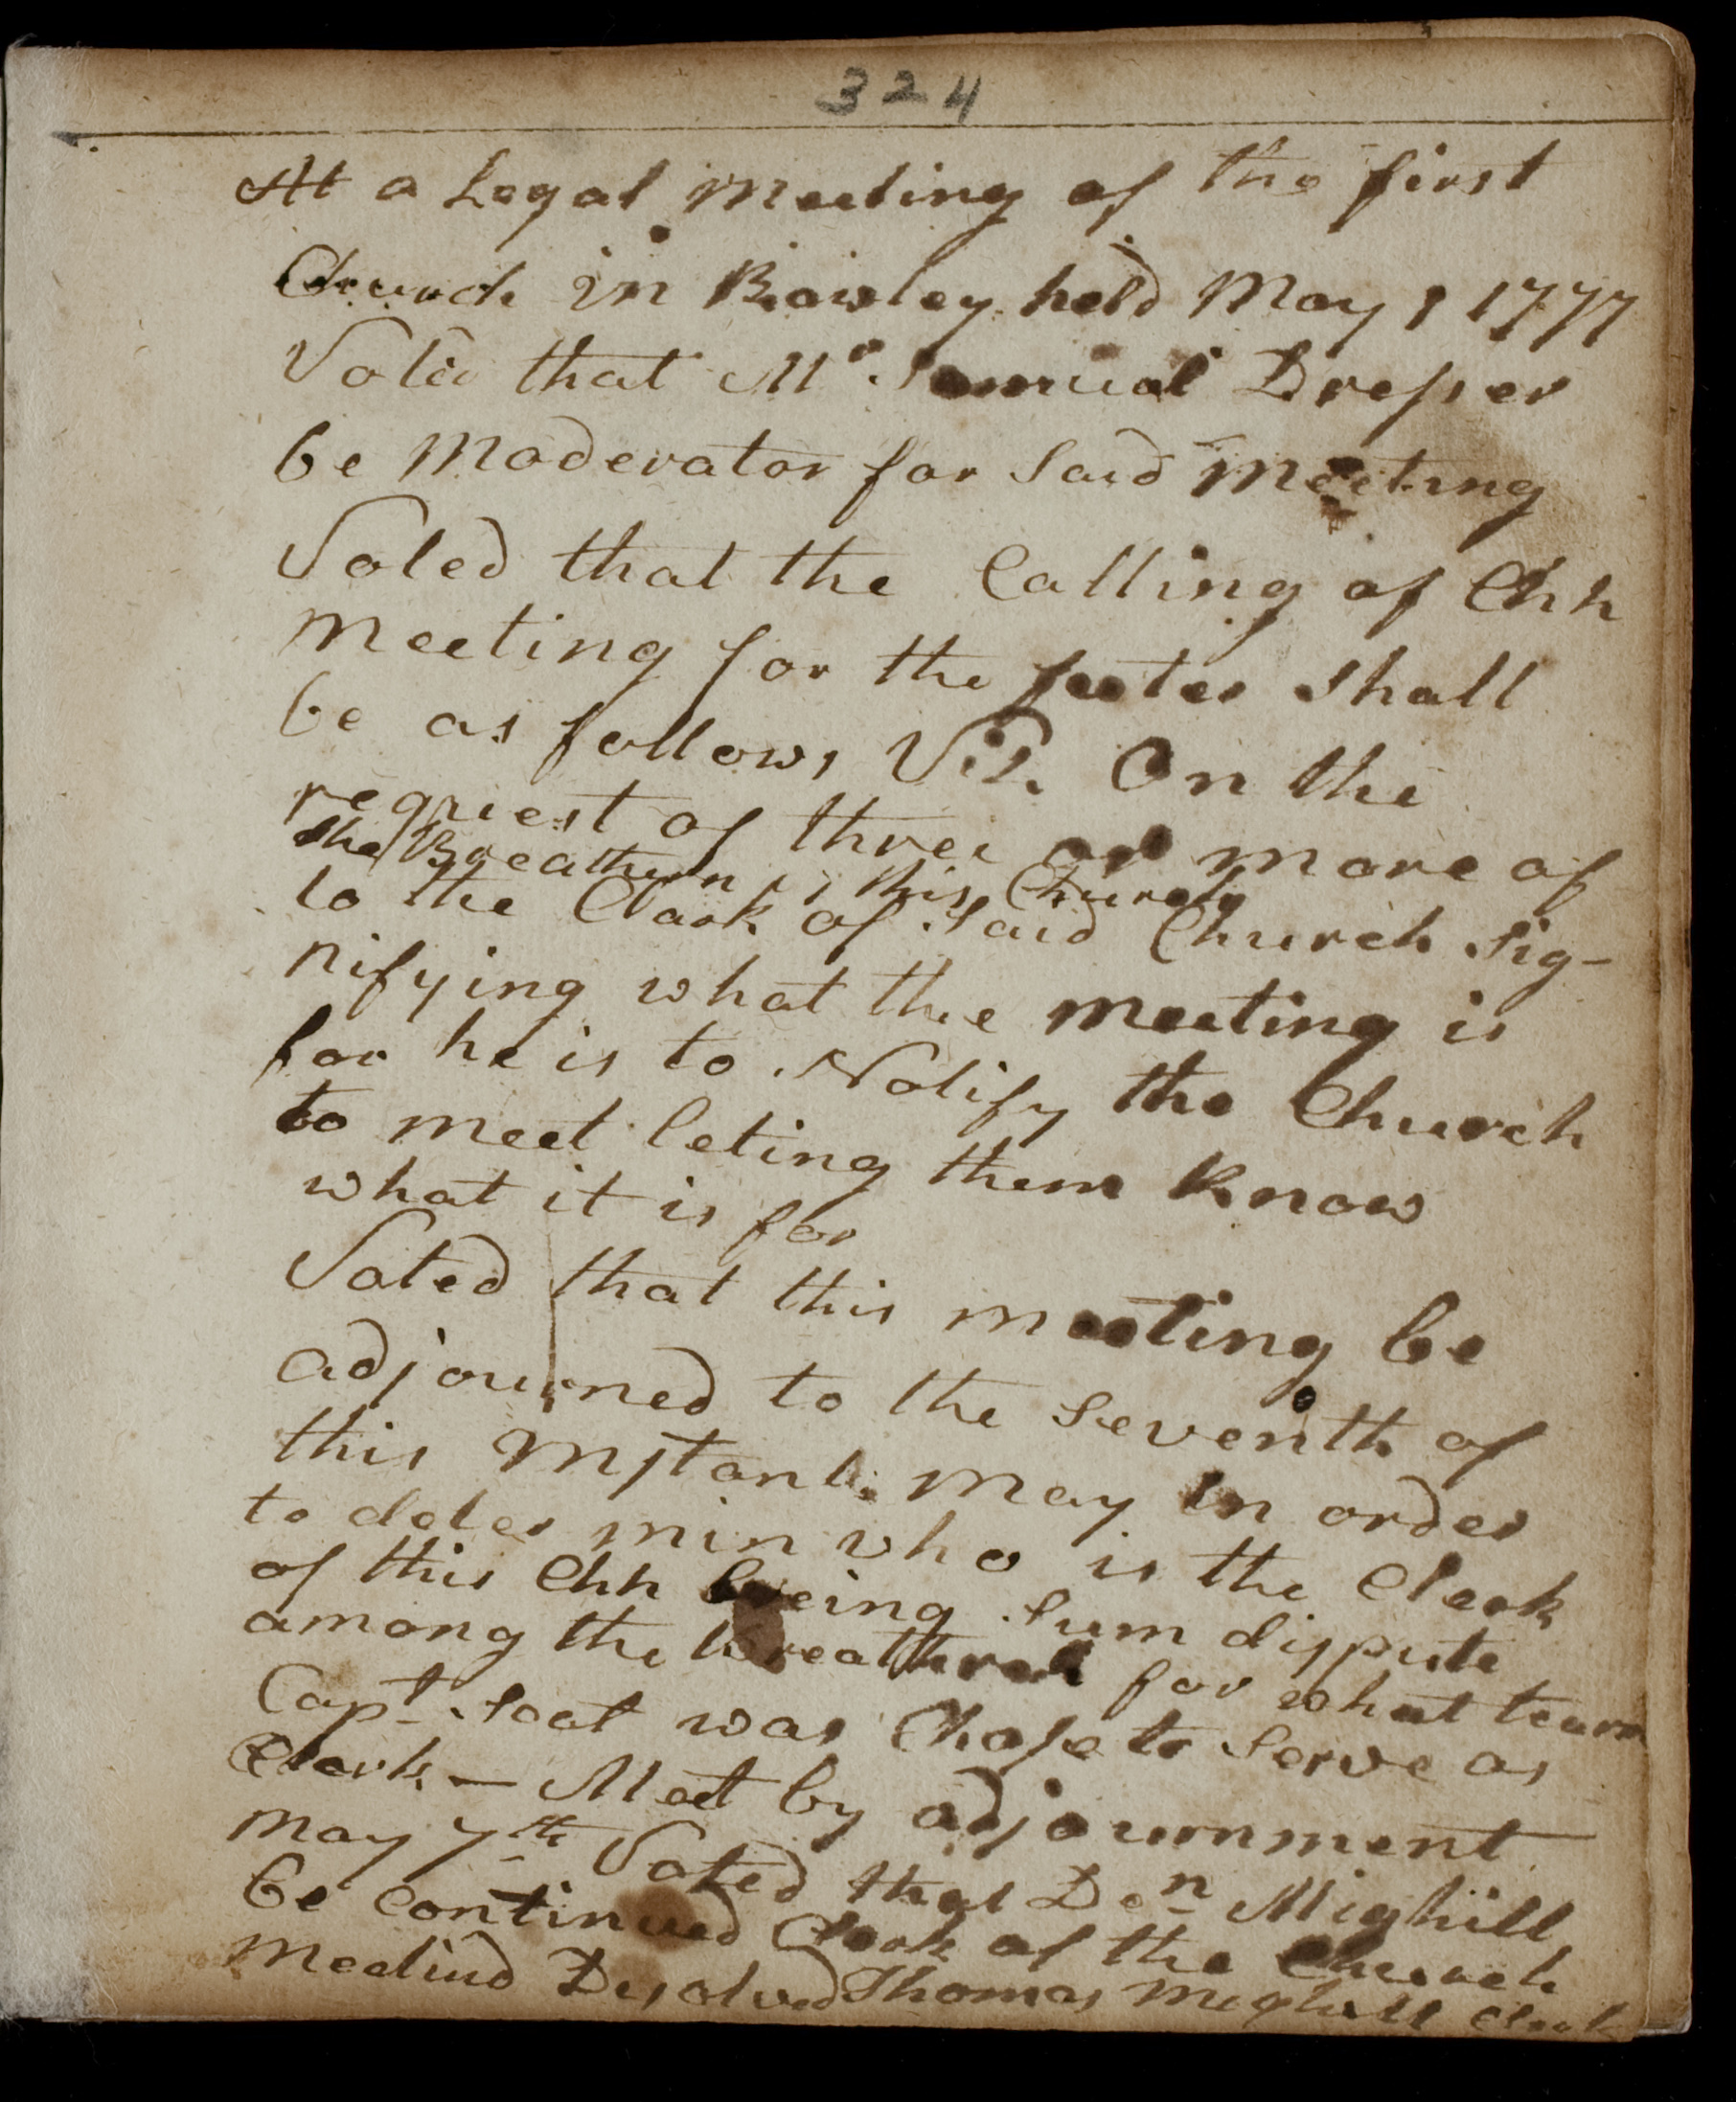 324
At a Legal Meeting of the first
Church in Rowley held May 1 1777
Voted that Mr Samuel Dresser
be Moderator for Said Meeting
Voted that the Calling of Chh
Meeting for the futer Shall
be as follows Viz. On the
request of three or more of
the Breathern of this Church
to the Clark of Said Church Sig-
nifying what thee meeting is
for he is to Notify the Church
to meet leting them know
what it is for
Voted that this meeting be
adjourned to the Seventh of
this Instant May in order
to deter min who is the Clerk
of this Chh being Sum dispute
among the breathren for what tearm
Capt Scot was Chose to Serve as
Clark — Meet by adjournment
May 7th Voted that Den Mighill
be Continued Clerk of the Church
Meetind Desolved Thomas Mighill Clerk